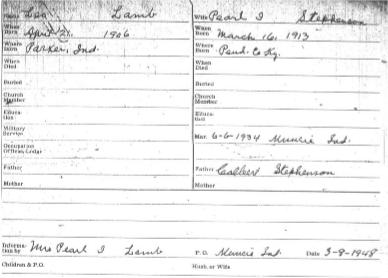 Name Lea Lamb Wife Pearl I Stephenson
When Born April 21, 1906 When Born March 16, 1913
Where Born Parker, Ind. Where Born Pend. Co Ky.
When Died When Died
Buried Buried
Church Member Church Member
Education Education
Military Service Mar. 6-6-1934 Muncie Ind.
Occupation Offices, Lodge
Father Father Stephenson
Mother Mother
Information by Mrs Pearl I Lamb P.O. Muncie Ind. Date 3-9-1948
Children & P.O. Husb. or Wife